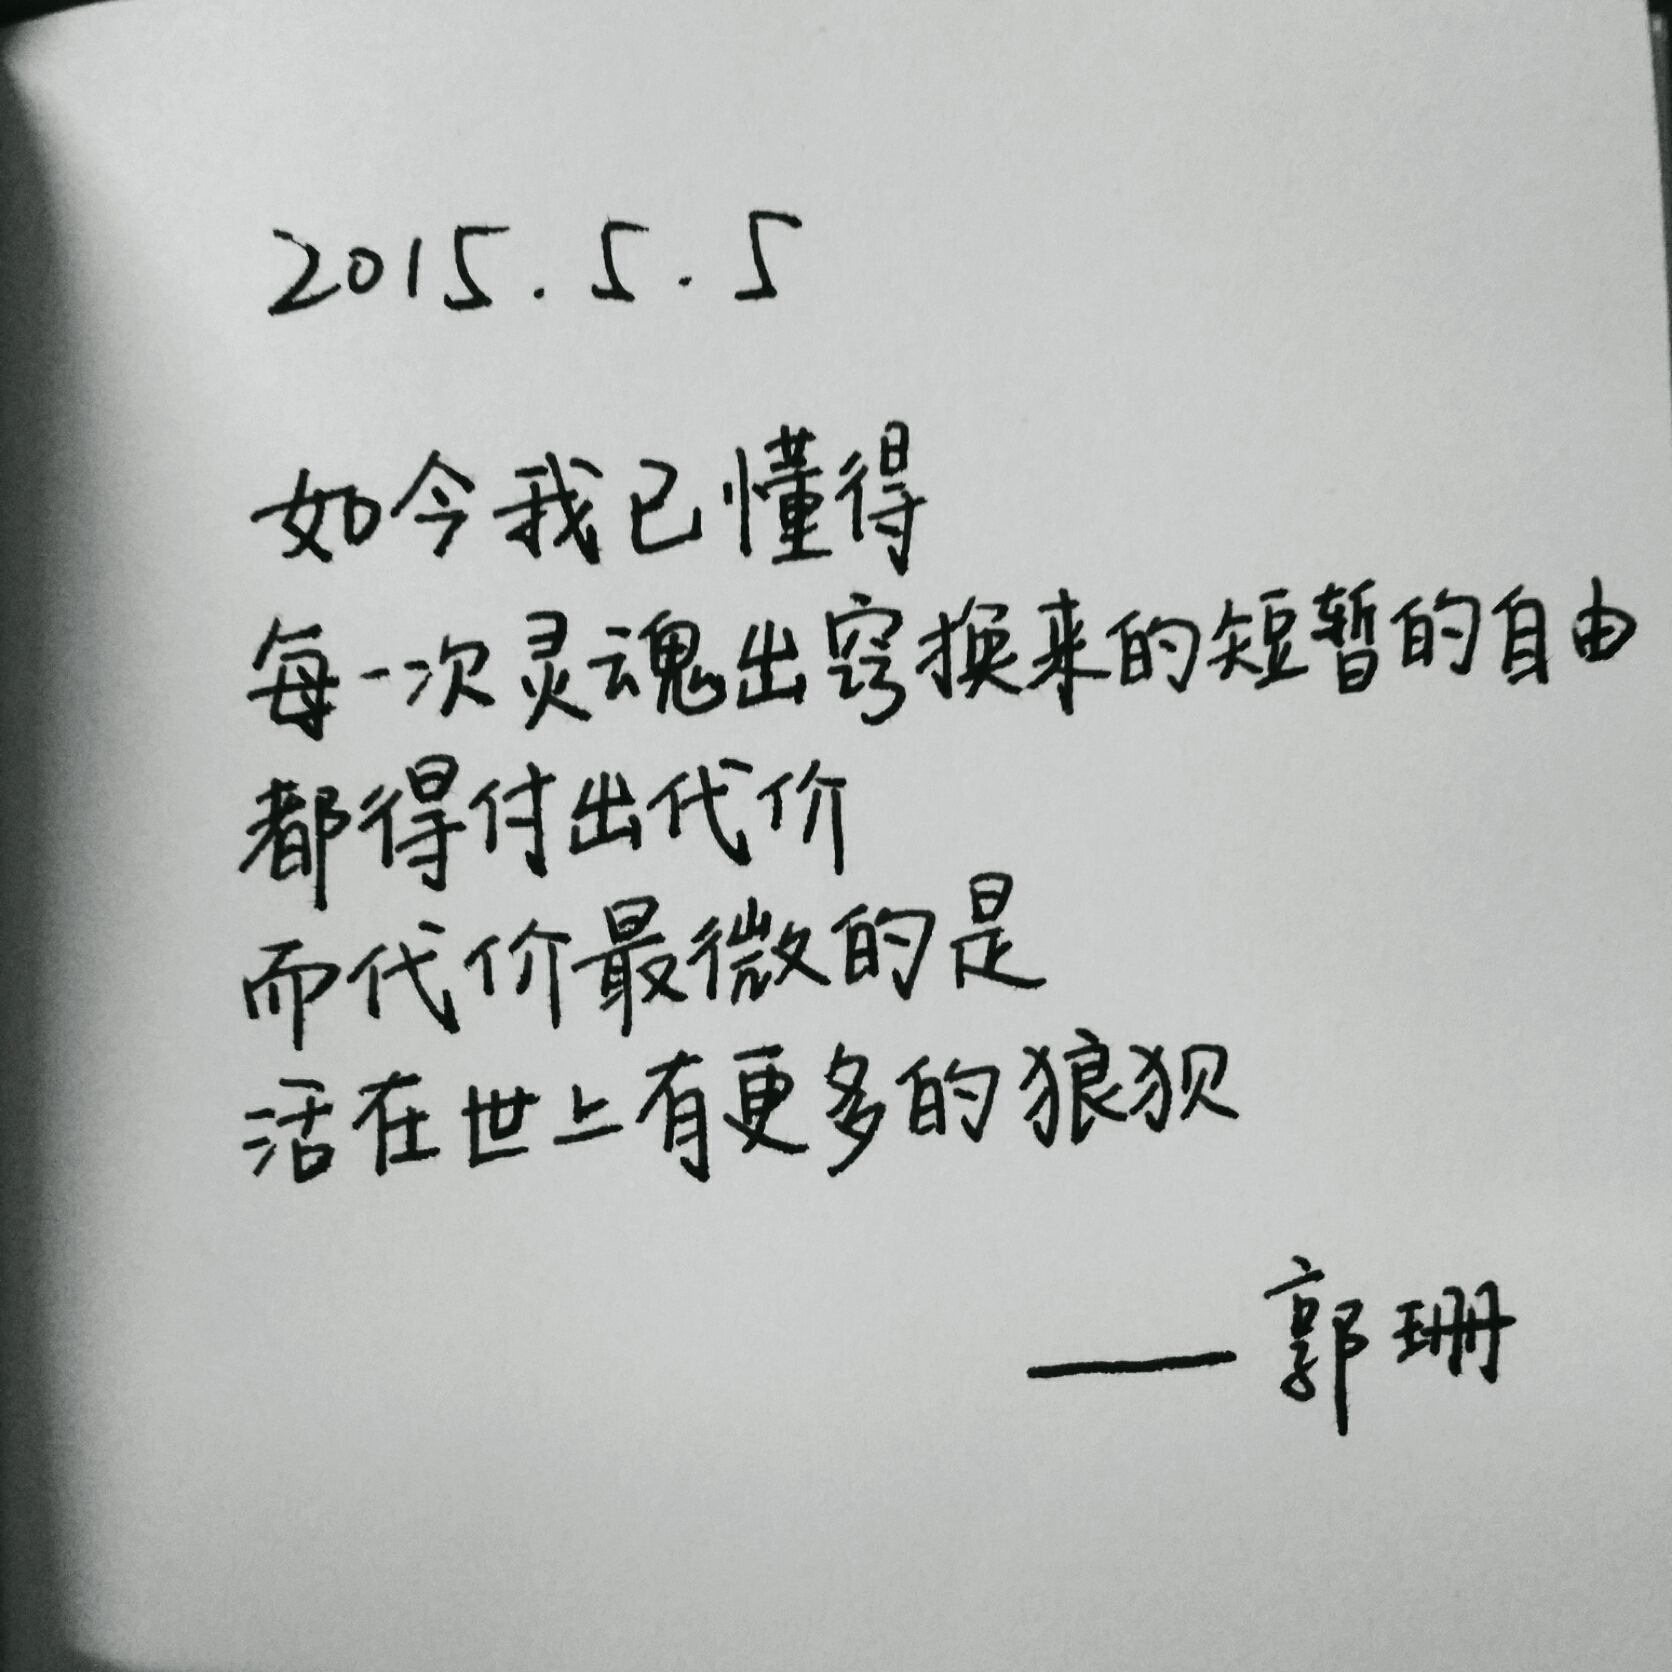 2015.5.5
如今我已懂得
每一次灵魂出窍换来的短暂的自由
都得付出代价
而代价最微的是
活在世上有更多的狼狈
——郭珊